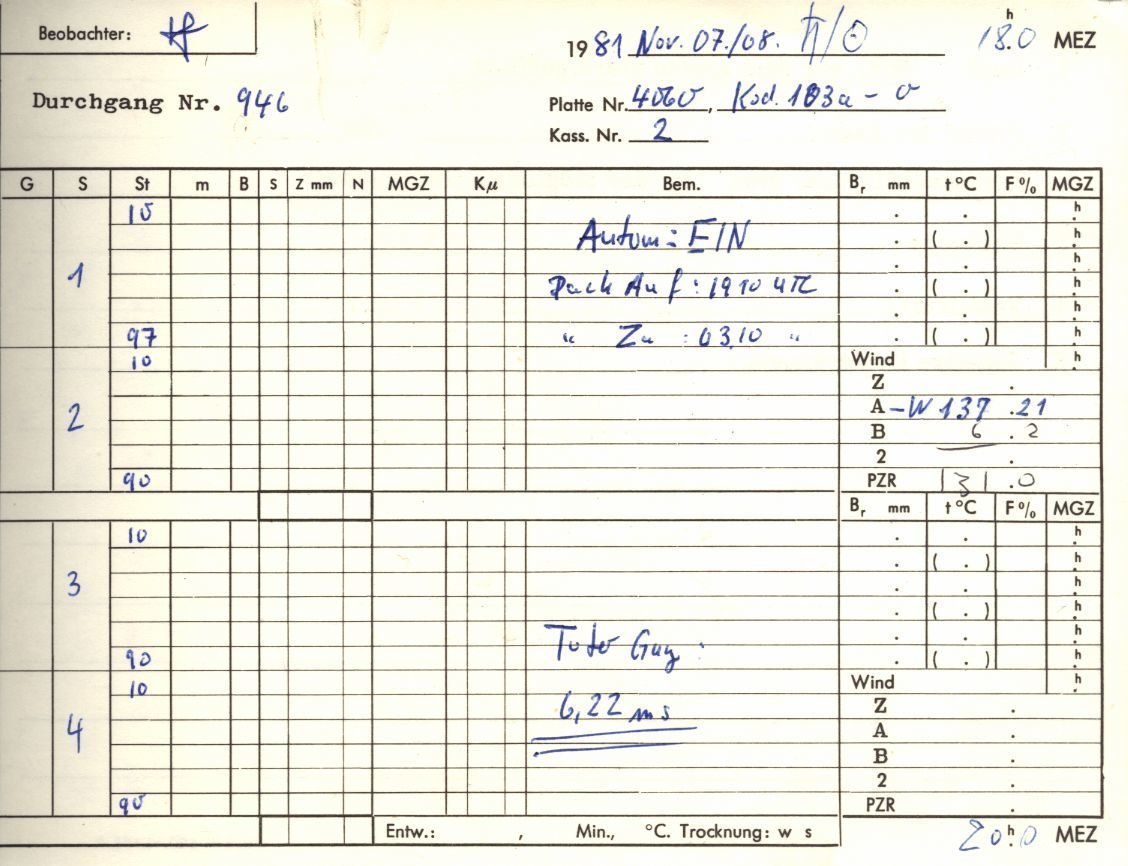 Beobachter:
1981 Nov. 07./08. ♄/☉ 18.0 h MEZ
Durchgang Nr. 946
Platte Nr. 4060, Kod. 103a-O
Kass. Nr. 2
G S St m B S Z mm N MGZ Kμ Bem. Br mm t°C F% MGZ
10 . . h
Autom: EIN . ( . ) h
. . h
1 Dach Auf: 1910 UTC . ( . ) h
. . h
97 " Zu : 03.10 " . ( . ) h
10 Wind h
Z .
A -W 137 .21
2 B 6 . 2
2 .
90 PZR 131 .0
Br mm t°C F% MGZ
10 . . h
. ( . ) h
3 . . h
. ( . ) h
Toter Gang: . . h
90 . ( . ) h
10 Wind h
6,22 ms Z .
4 A .
B .
2 .
90 PZR .
Entw.: , Min., °C. Trocknung: w s
20.0 h MEZ